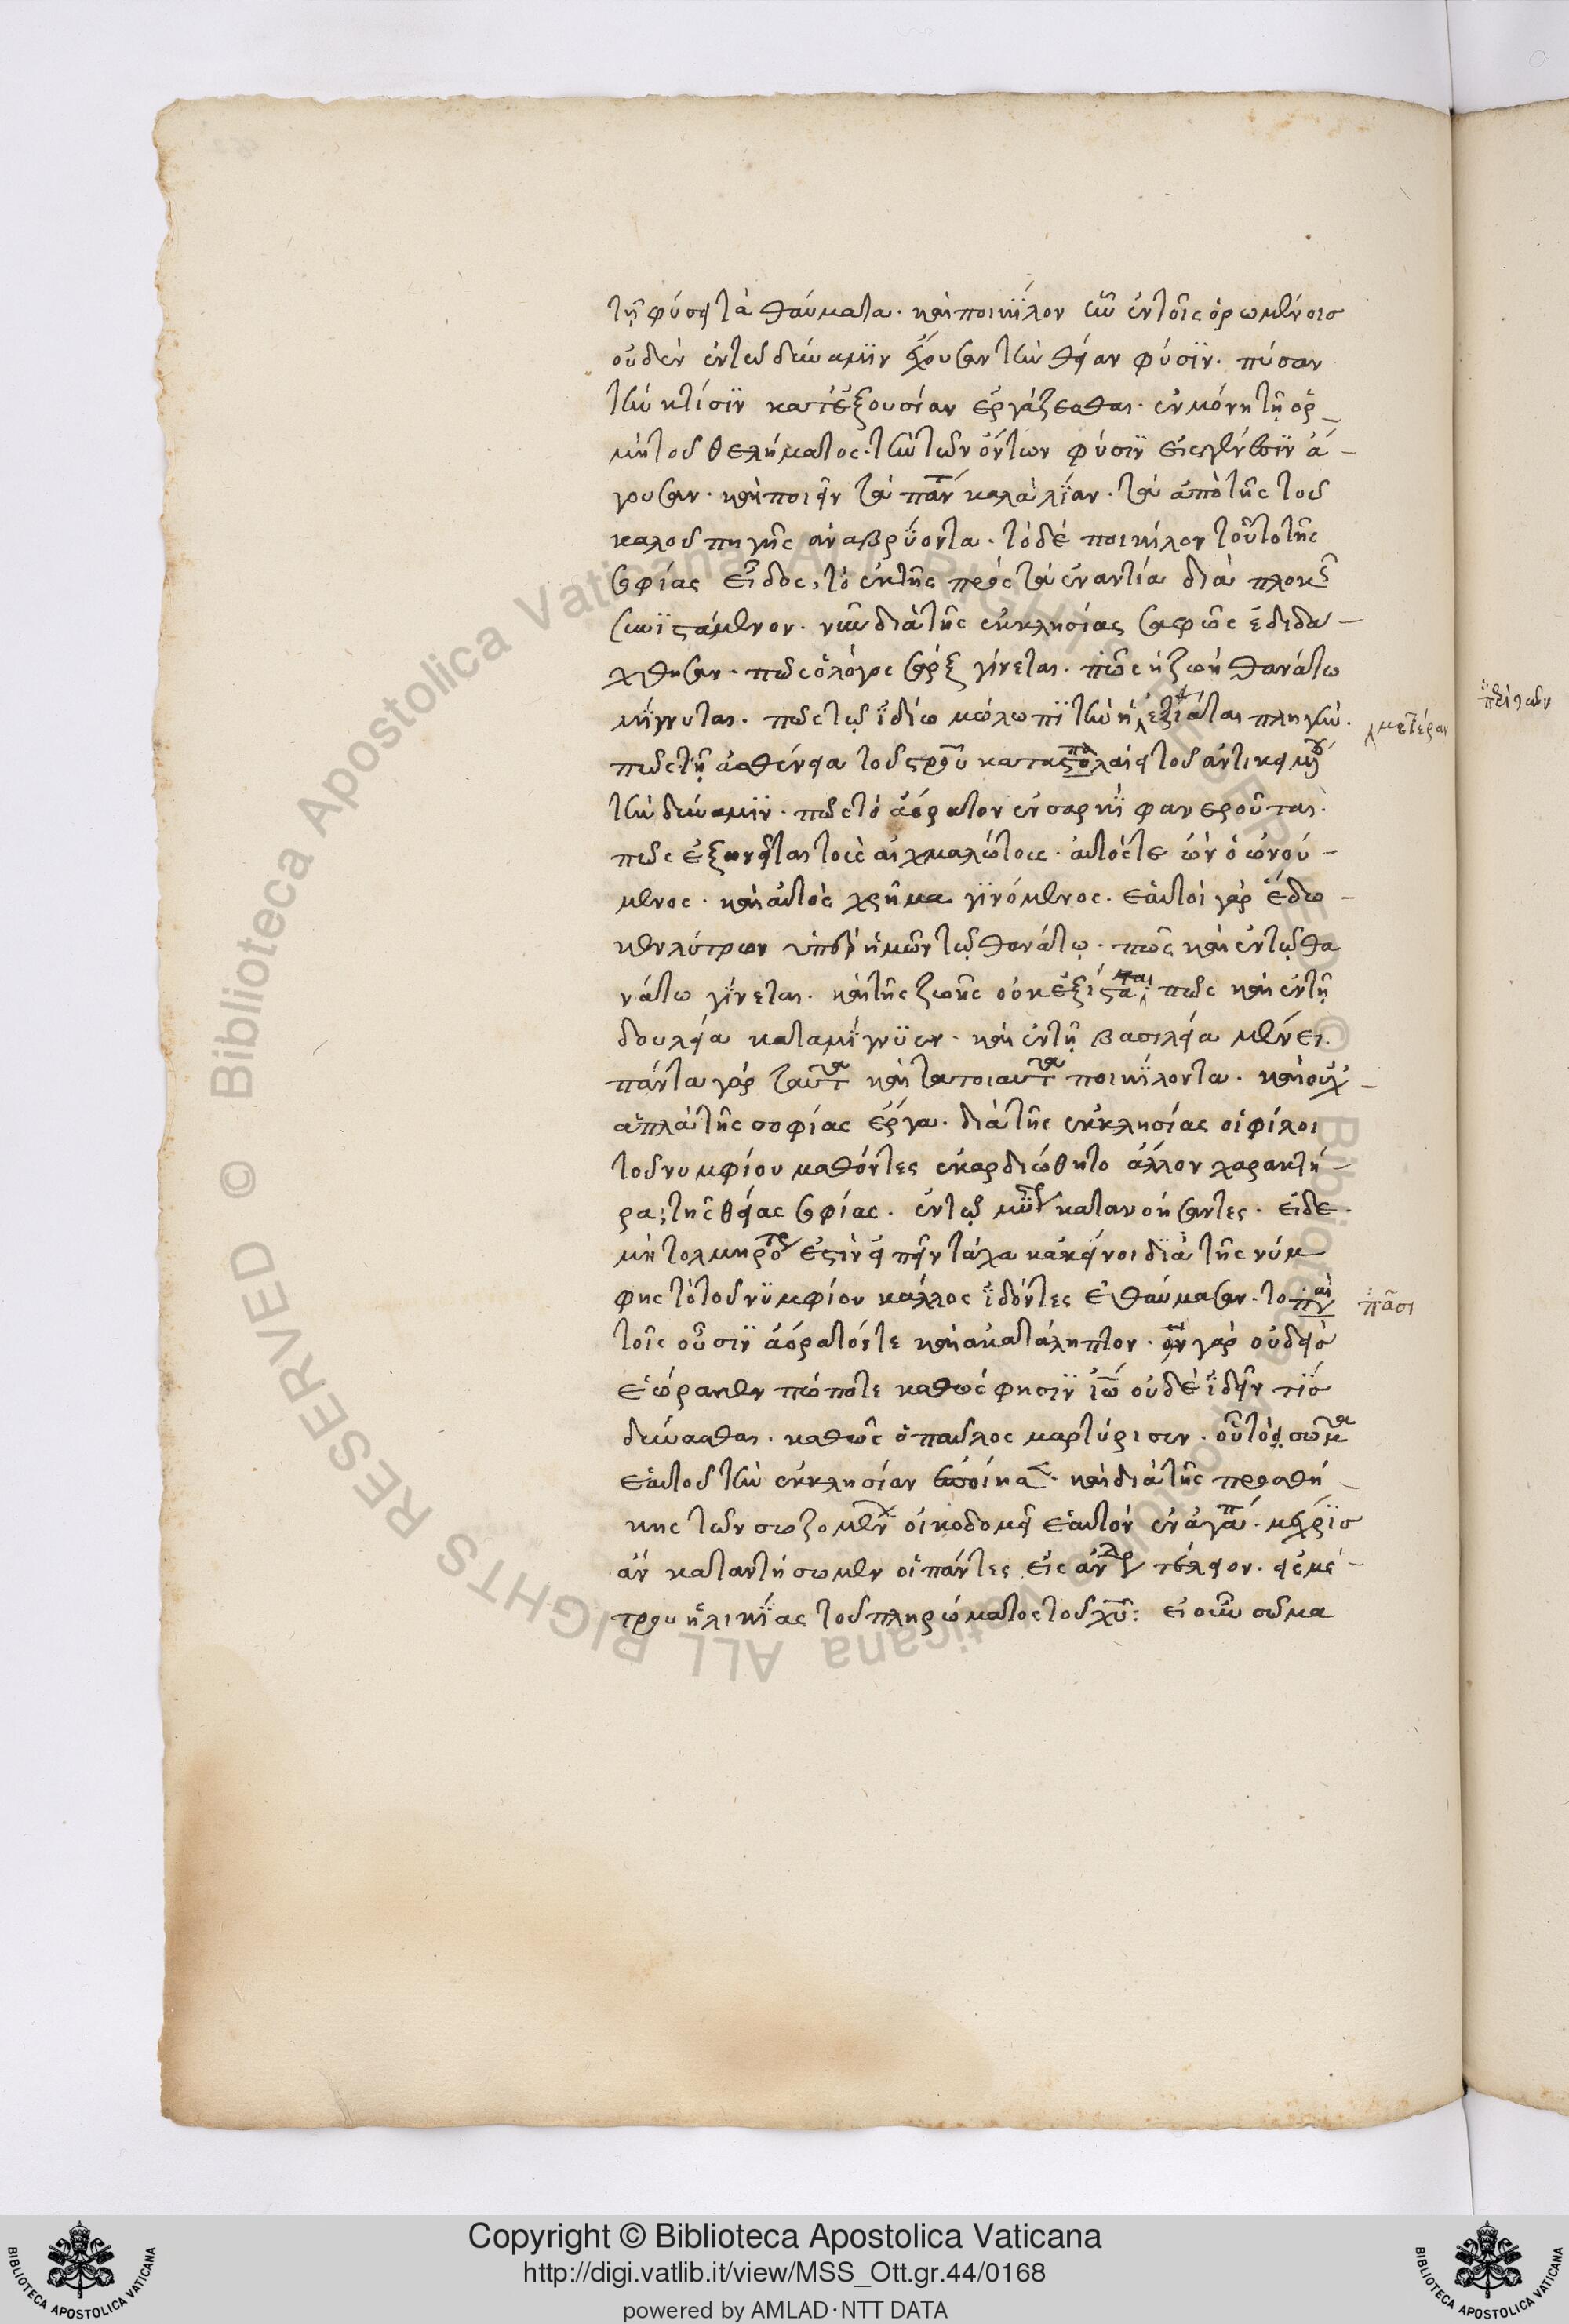 τῇ φύσει τὰ θαύματα. καὶ ποικίλον ἦν ἐν τοῖς ὁρωμένοις
οὐδὲν ἐν τῷ δύναμιν ἔχουσαν τὴν θείαν φύσϊν. πᾶσαν
τὴν κτίσϊν κατ' ἐξουσίαν ἐργάζεσθαι. ἐν μόνῃ τῇ ὁρ-
μῇ τοῦ θελήματος. τὴν τῶν ὄντων φύσϊν εἰς γένεσϊν ἄ-
γουσαν. καὶ ποιεῖν τὰ πάντα καλὰ λίαν. τὰ ἀπὸ τῆς τοῦ
καλοῦ πηγῆς ἀναβρύοντα. τὸ δὲ ποικίλον τοῦτο τῆς
σοφίας εἶδος, τὸ ἐκ τῆς πρὸς τὰ ἐναντία διὰ πλοκῆς
συνϊστάμενον. νῦν διὰ τῆς ἐκκλησίας σαφῶς ἐδιδά-
χθησαν. πῶς ὁ λόγος σὰρξ γίνεται. πῶς ἡ ζωὴ θανάτω
μίγνυται. πῶς τῷ ἰδίω μώλωπϊ τὴν ἡ ἐξιᾶται πληγήν.
μετέραν
πῶς τῇ ἀσθενεία τοῦ σταυροῦ καταπαλαίει τοῦ ἀντικειμένου
τὴν δύναμϊν. πῶς τὸ ἀόρατον ἐν σαρκὶ φανεροῦται.
πῶς ἐξωνεῖται τοὺς αἰχμαλώτους. αὐτός τε ὢν ὁ ὠνού-
μενος. καὶ αὐτὸς χρῆμα γϊνόμενος. ἑαυτὸν γὰρ ἔδω-
κεν λύτρον ὑπὲρ ἡμῶν τῷ θανάτῳ. πῶς καὶ ἐν τῷ θα
νάτω γίνεται. καὶ τῆς ζωῆς οὐκ ἐξίσταται, πῶς καὶ ἐν τῇ
δουλεία καταμίγνϋεν. καὶ ἐν τῇ βασιλεία μένει.
πάντα γὰρ ταῦτα καὶ τὰ τοιαῦτα ποικίλοντα. καὶ οὐχ-
ἁπλὰ τῆς σοφίας ἔργα. διὰ τῆς ἐκκλησίας οἱ φίλοι
τοῦ νυμφίου μαθόντες ἐκαρδιώθητο ἄλλον χαρακτῆ-
ρα, τῆς θείας σοφίας. ἐν τῷ μυστηρίω κατανοήσαντες. εἰ δὲ.
μὴ τολμηρὸν ἐστὶν εἰπεῖν τάχα κἀκεῖνοι διὰ τῆς νύμ
φης τὸ τοῦ νϋμφίου κάλλος ἰδόντες ἐθαύμασαν. τὸ πᾶν
πᾶσι
τοῖς οὖσϊν ἀόρατόν τε καὶ ἀκατάληπτον. ὃν γὰρ οὐδεὶς
ἑώρακεν πώποτε καθώς φησϊν ἰω οὐδὲ ἰδεῖν τὶς
δύνασθαι. καθῶς ὁ παῦλος μαρτύρισεν. οὗτος σῶμα
ἑαυτοῦ τὴν ἐκκλησίαν ἐποίησε. καὶ διὰ τῆς προσθή-
κης τῶν σωζομένων οἰκοδομεῖ ἑαυτὸν ἐν ἀγάπη. μέχρϊς
ἂν καταντήσωμεν οἱ πάντες εἰς ἄνδρα τέλειον. εἰς μέ-
τρον ἡλικίας τοῦ πληρώματος τοῦ χῦ: εἰ οὖν σῶμα
Copyright © Biblioteca Apostolica Vaticana
http://digi.vatlib.it/view/MSS_Ott.gr.44/0168
powered by AMLAD·NTT DATA
BIBLIOTECA APOSTOLICA VATICANA
BIBLIOTECA APOSTOLICA VATICANA